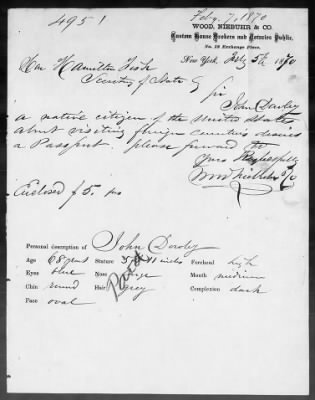 4951
Feby. 7, 1870
WOOD, NIEBUHR & CO.
Custom House Brokers and Notaries Public,
No. 18 Exchange Place.
New York, Feby 5th 1870
Hon Hamilton Fish
Secretary of State
Sir
John Dowley
a native citizen of the United States
about visiting foreign countries desires
a Passport. please forward to
Yours Respectfully
Wood Niebuhr & Co
Enclosed $5.
Personal description of John Dowley
Age 68 years Stature 5 ft 11 inches Forehead high
Eyes blue Nose large Mouth medium
Chin round Hair grey Complexion dark
Face oval
Paid